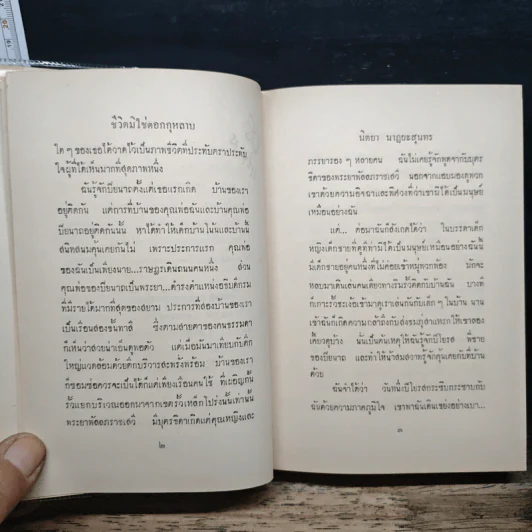 ชีวิตมิใช่ดอกกุหลาบ
ใด ๆ ของเธอได้วาดไว้เป็นภาพชีวิตที่ประทับตราประทับ
ใจผู้ที่ได้เห็นมากที่สุดภาพหนึ่ง
ฉันรู้จักปิยนาถตั้งแต่เธอแรกเกิด บ้านของเรา
อยู่ติดกัน แต่การที่บ้านของคุณพ่อฉันและบ้านคุณพ่อ
ปิยนาถอยู่ติดกันนั้น หาได้ทำให้เด็กบ้านโน้นและบ้านนี้
สนิทสนมคุ้นเคยกันไม่ เพราะประการแรก คุณพ่อ
ของฉันเป็นเพียงนาย...ราษฎรเดินถนนคนหนึ่ง ส่วน
คุณพ่อของปิยนาถเป็นพระยา...ดำรงตำแหน่งอธิบดีกรม
ที่มีรายได้มากที่สุดของสยาม ประการที่สองบ้านของเรา
เป็นเรือนสองชั้นทาสี ซึ่งตามสายตาของคนธรรมดา
ก็เห็นว่าสวยน่าเอ็นดูพอตัว แต่เมื่อมันมาเทียบกับตึก
ใหญ่แวดล้อมด้วยตึกบริวารสะพรั่งพร้อม บ้านของเรา
ก็ย่อมควรจะเป็นได้แต่เพียงเรือนคนใช้ ที่เผอิญกั้น
รั้วแยกบริเวณออกมาจากเขตรั้วเหล็กโปร่งนั้นเท่านั้น
พระยาพัลลภราชเสวี มีบุตรธิดาเกิดแต่คุณหญิงและ
๒
นิตยา นาฏยะสุนทร
ภรรยารอง ๆ หลายคน ฉันไม่เคยรู้จักพูดจากับบุตร
ธิดาของพระยาพัลลภราชเสวี นอกจากแอบมองดูพวก
เขาด้วยความอิจฉาและพิศวงที่ว่าเขามิได้เป็นมนุษย์
เหมือนอย่างฉัน
แต่... ต่อมาฉันก็สังเกตได้ว่า ในบรรดาเด็ก
หญิงเด็กชายที่ดูทีท่ามิได้เป็นมนุษย์เหมือนอย่างฉันนี้
มีเด็กชายอยู่คนหนึ่งที่ไม่ค่อยเข้าหมู่พวกพ้อง มักจะ
หลบมาเดินเล่นคนเดียวทางริมรั้วติดกับบ้านฉัน บางที
เขาฉันก็เกิดความกล้าถึงกับส่งชมพู่สาแหรกให้เขาสอง
ของปิยนาถ และทำให้น้าสมสวาทรู้จักคุ้นเคยกับที่บ้าน
ด้วย
ฉันจำได้ว่า วันหนึ่งปิโยรสกระซิบกระซาบกับ
ฉันด้วยความภาคภูมิใจ เขาพาฉันเดินเขย่งอย่างเบา...
๓